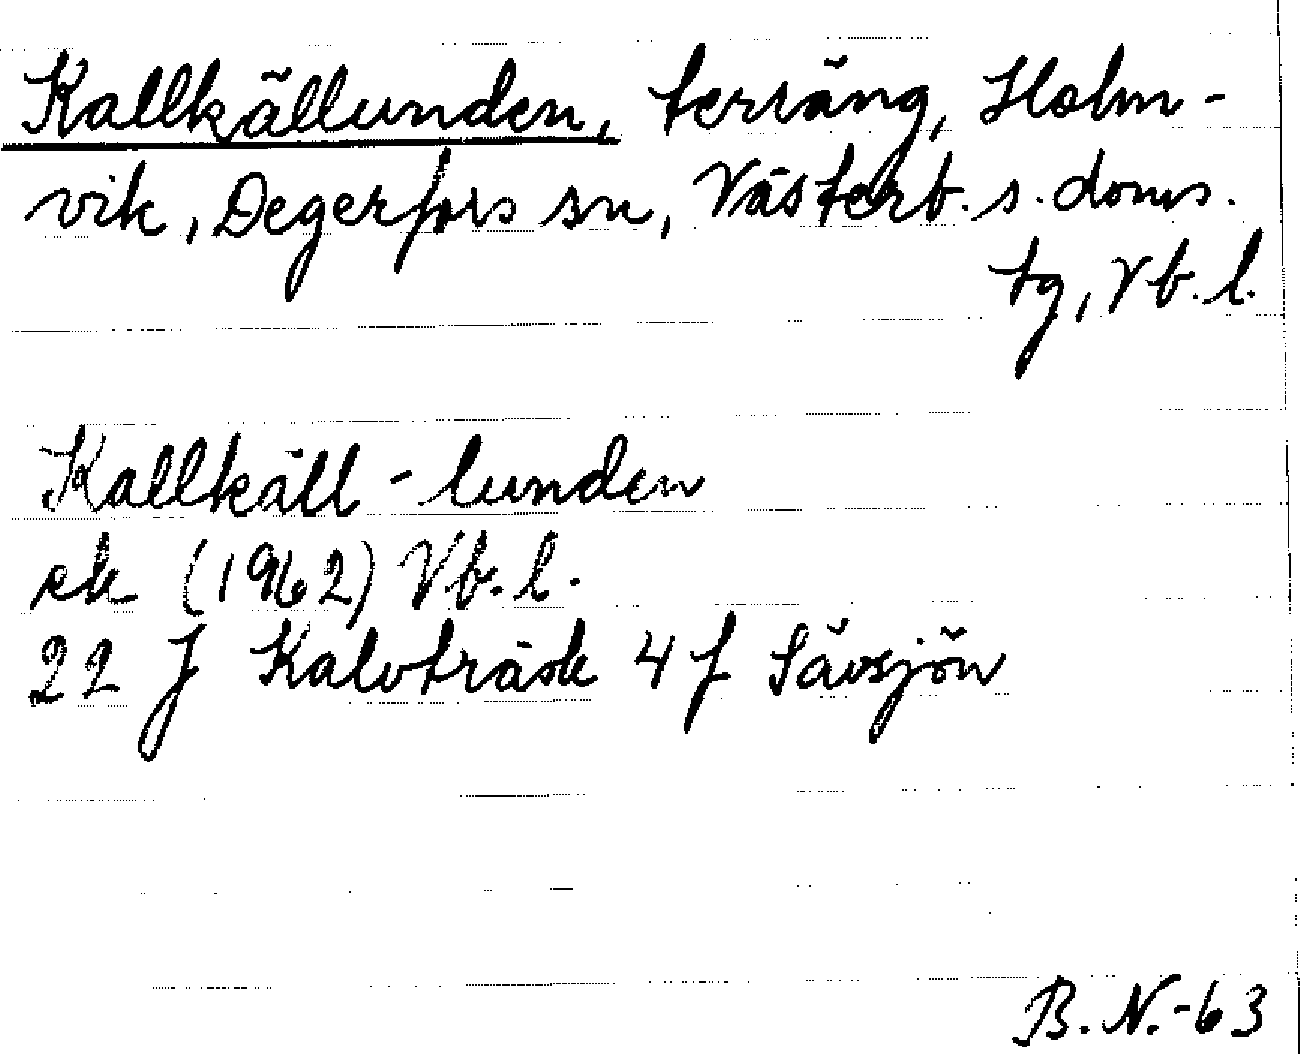 Kallkällunden, terräng, Holm-
vik, Degerfors sn, Västerb. s. doms.
tg, Vb. l.
Kallkäll-lunden
ek (1962) Vb. l.
22 J Kalvträsk 4 f Sävsjön
B. N. -63